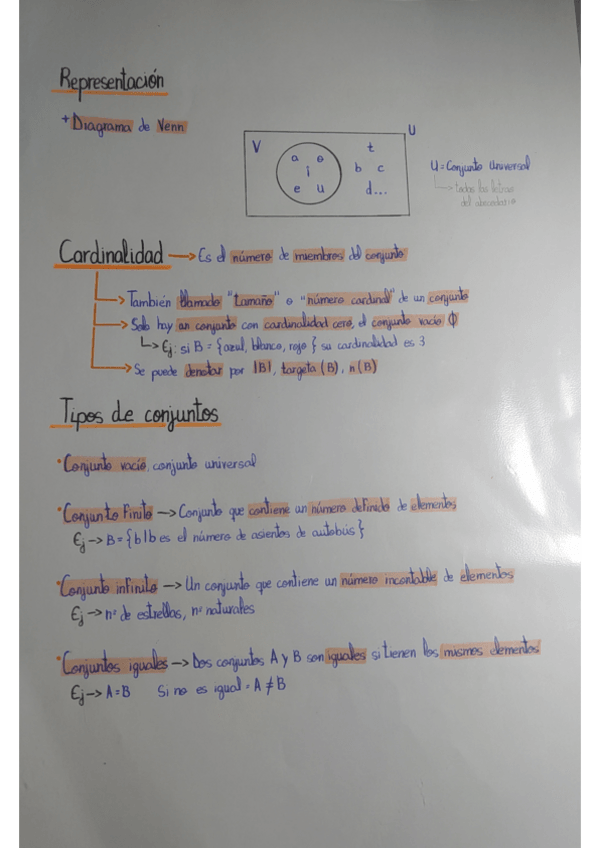 Representación
+ Diagrama de Venn
U
V
a o t
i b c
e u d...
U = Conjunto Universal
todas las letras
del abecedario
Cardinalidad → Es el número de miembros del conjunto
→ También llamado "tamaño" o "número cardinal" de un conjunto
→ Solo hay un conjunto con cardinalidad cero, el conjunto vacío ϕ
↳ Ej: si B = {azul, blanco, rojo} su cardinalidad es 3
→ Se puede denotar por |B|, targeta (B), n(B)
Tipos de conjuntos
• Conjunto vacío, conjunto universal
• Conjunto Finito → Conjunto que contiene un número definido de elementos
Ej → B = {b|b es el número de asientos de autobús}
• Conjunto infinito → Un conjunto que contiene un número incontable de elementos
Ej → nº de estrellas, nº naturales
• Conjuntos iguales → Dos conjuntos A y B son iguales si tienen los mismos elementos
Ej → A = B Si no es igual · A ≠ B